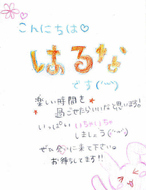 こんにちは♡
はるな
です(^ー^)
楽しい時間を
過ごせたらいいなと思います。
いっぱいいちゃいちゃ
しましょう(^ー^)
ぜひ会いに来て下さい。
お待ちしてます!!